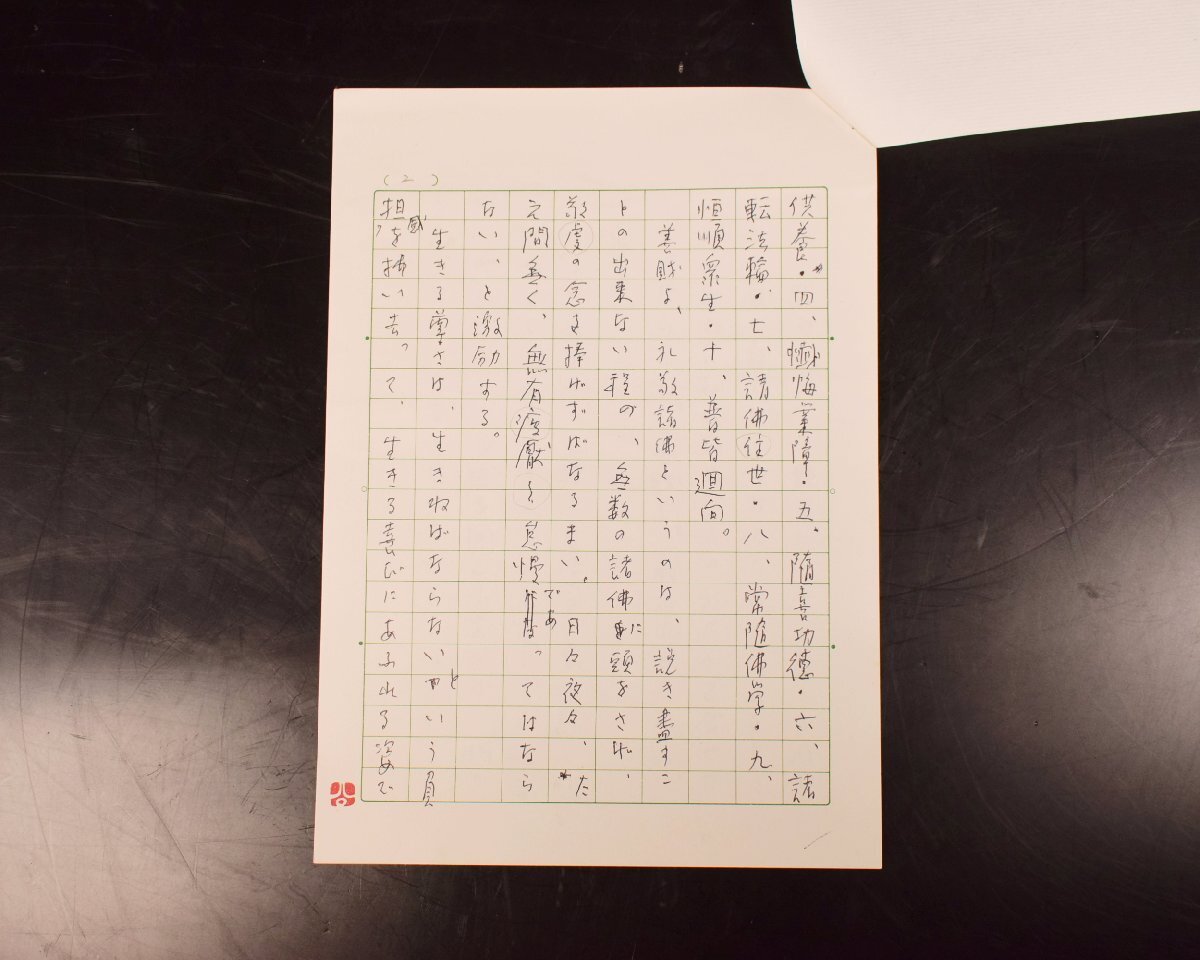 (2)
供養・四、懺悔業障・五、隨喜功徳・六、諸
転法輪・七、請佛住世・八、常隨佛学・九、
恒順衆生・十、普皆廻向。
善財よ、礼敬諸佛というのは、説き盡すこ
との出来ない程の、無数の諸佛に頭をさげ、
敬虔の念を捧げずばなるまい。日々夜々、た
え間無く、無有疲厭と怠慢であってはなら
ない、と激励する。
生きる尊さは、生きねばならないという負
担感を拂い去って、生きる喜びにあふれる姿で